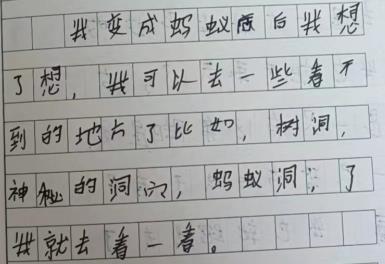 我变成蚂蚁后我想
了想，我可以去一些看不
到的地方了比如，树洞，
神秘的洞穴，蚂蚁洞，了
我就去看一看。